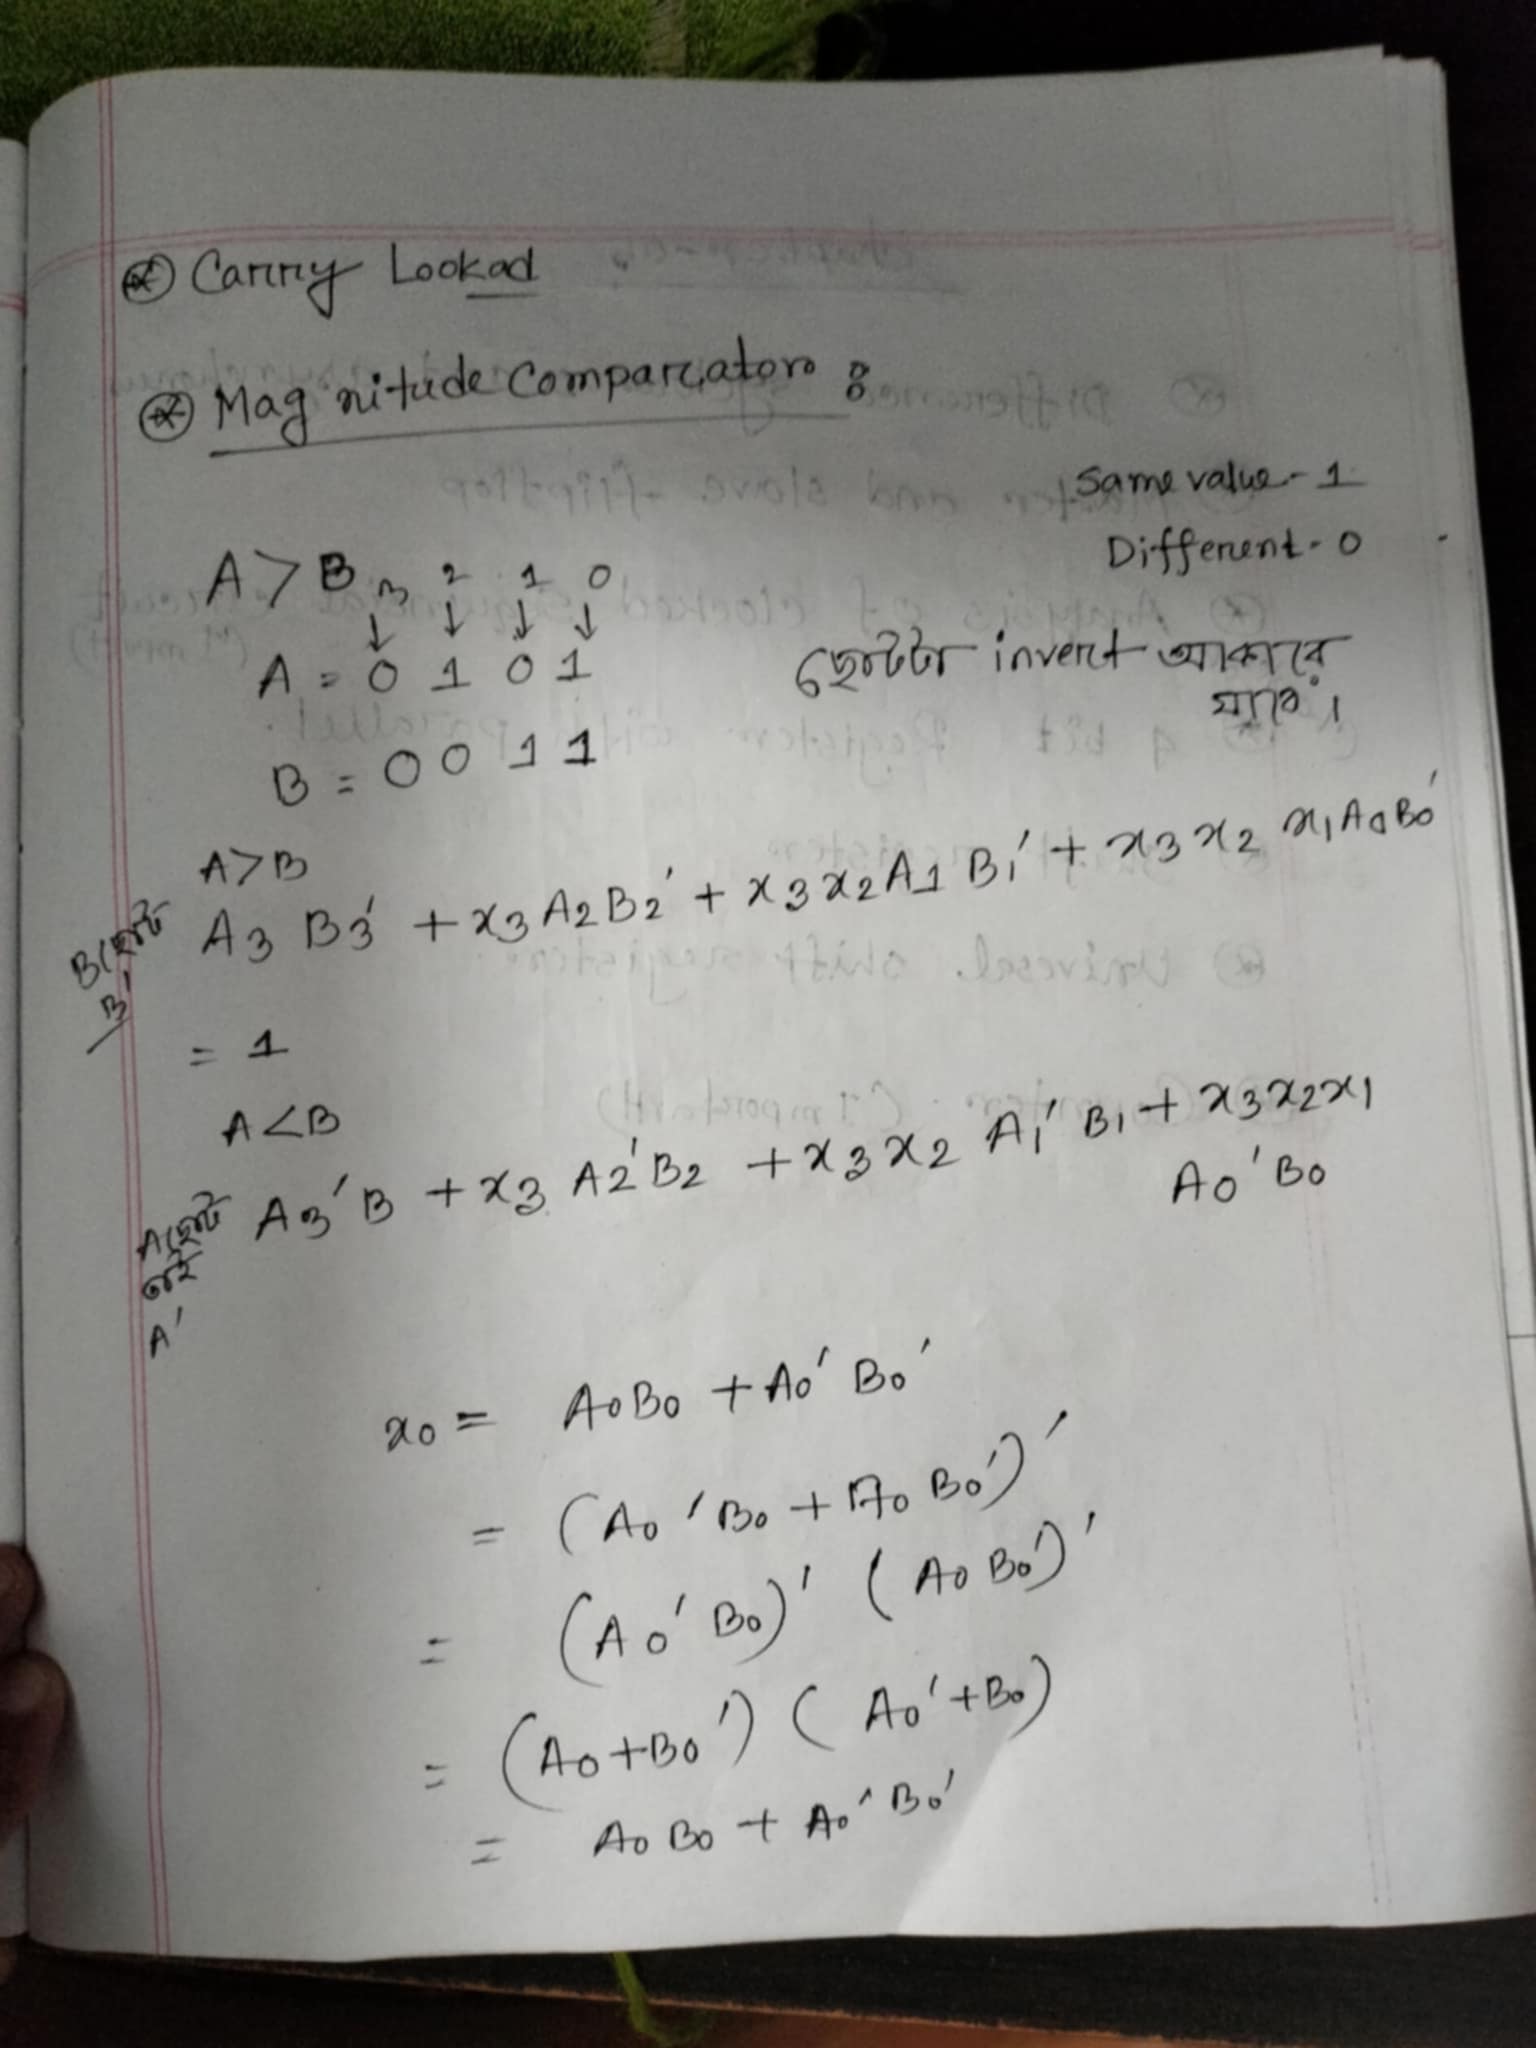 ⊛ Carry Lookad
⊛ Magnitude Comparator :
Same value - 1
Different - 0
A > B 3 2 1 0
↓ ↓ ↓ ↓
A = 0 1 0 1
ছোটটা invert আকারে
যাবে।
B = 0 0 1 1
A>B
B ছোট
B'
A3 B3' + x3 A2 B2' + x3 x2 A1 B1' + x3 x2 x1 A0 B0'
= 1
A<B
A ছোট
তাই
A'
A3' B + x3 A2' B2 + x3 x2 A1' B1 + x3 x2 x1
A0' B0
x0 = A0 B0 + A0' B0'
= (A0' B0 + A0 B0')'
= (A0' B0)' (A0 B0')'
= (A0 + B0') (A0' + B0)
= A0 B0 + A0' B0'